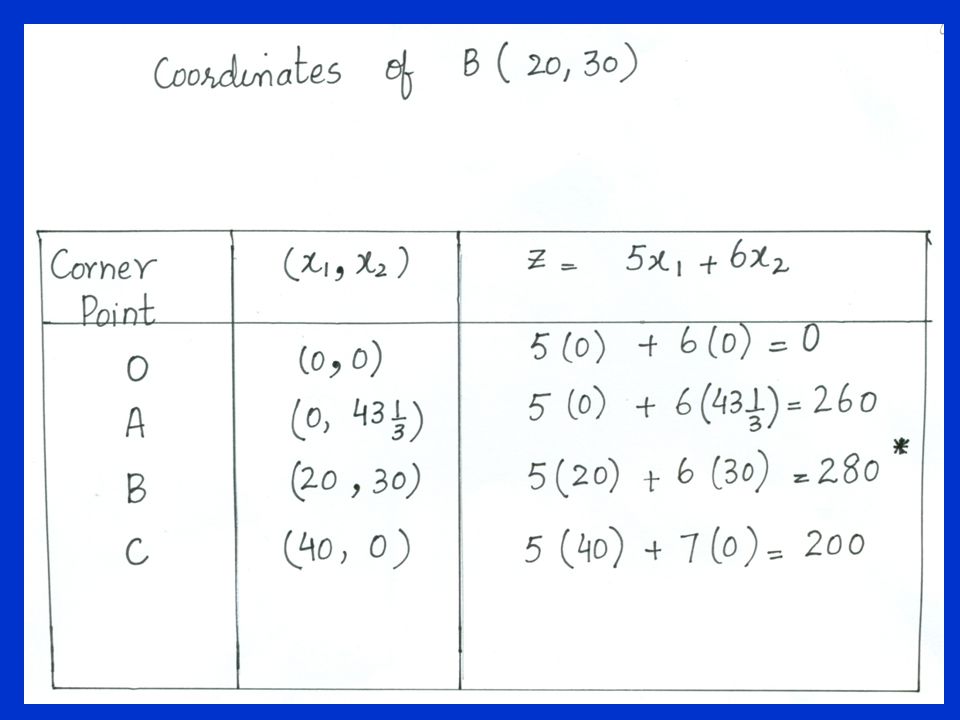 Coordinates of B ( 20, 30)
Corner Point (x₁, x₂) Z = 5x₁ + 6x₂
O (0, 0) 5 (0) + 6 (0) = 0
A (0, 43 1/3) 5 (0) + 6 (43 1/3) = 260
B (20, 30) 5(20) + 6 (30) = 280 *
C (40, 0) 5 (40) + 7 (0) = 200